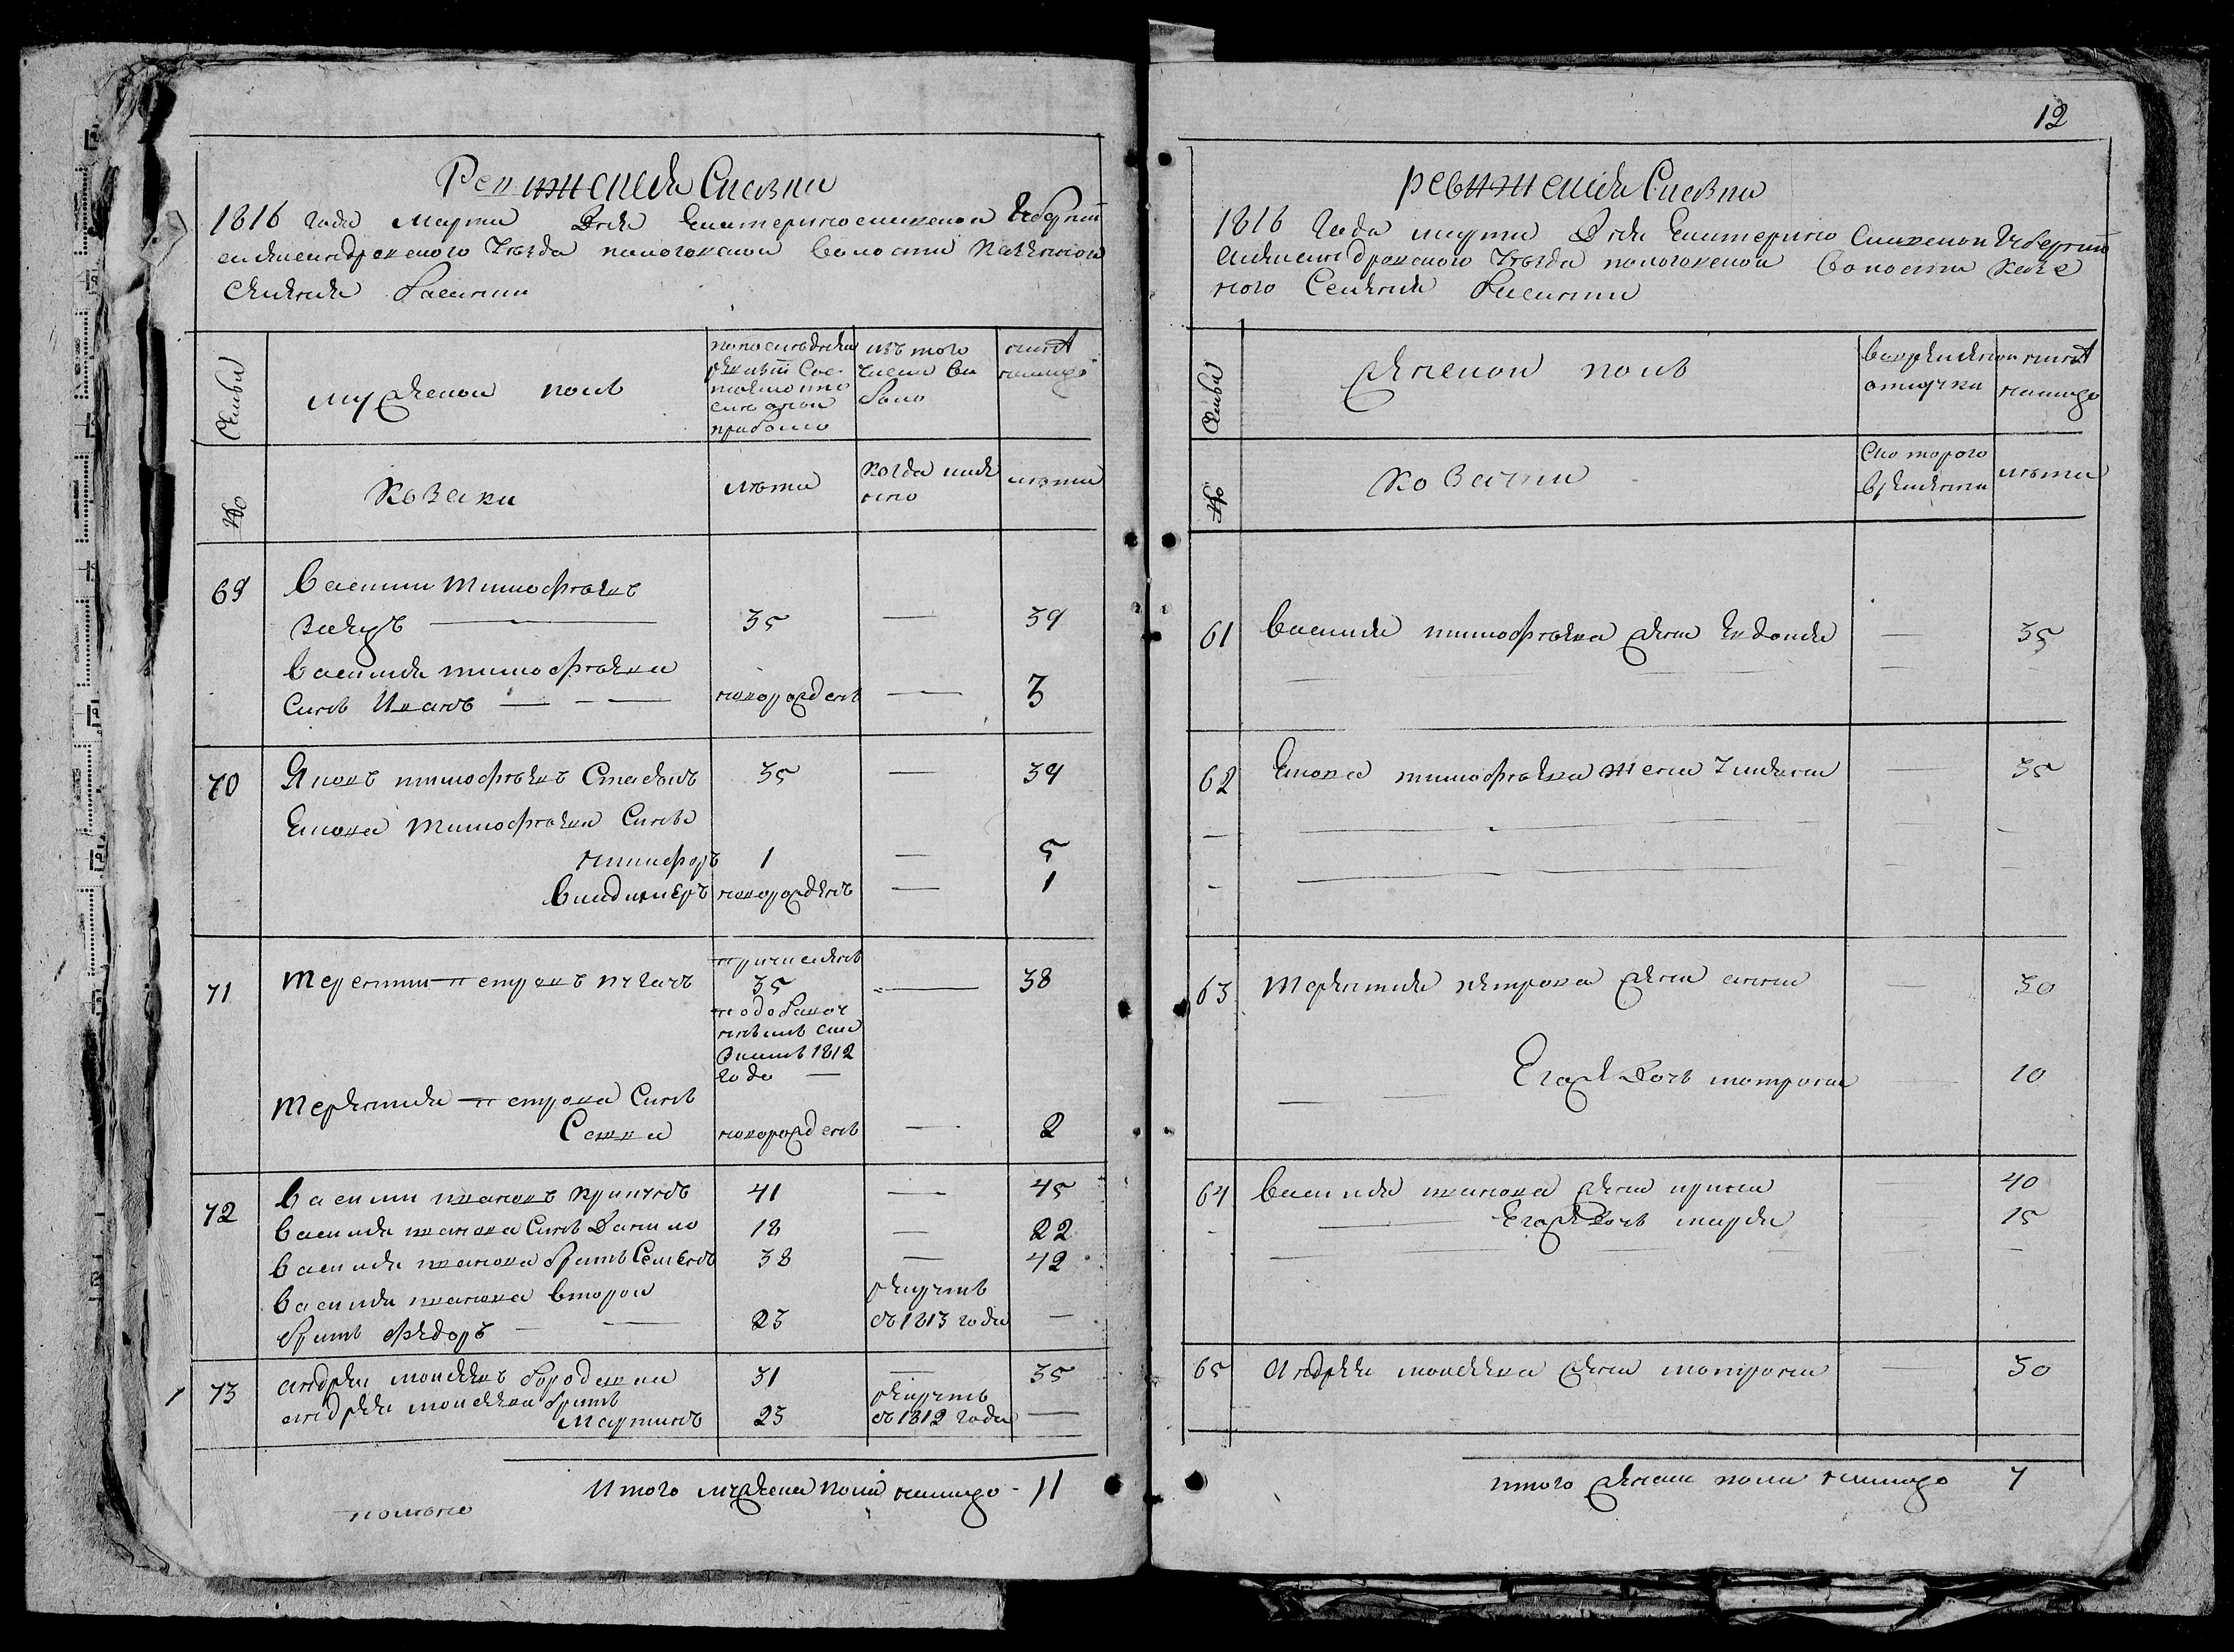 Ревижская Сказка
1816 года марта Дня Екатеринославской Губернии
александровского Уезда пологовской волости казенного
селения
Семьи
мужеской полъ
по последней
ревизии сос
тояло и по
сле оной
прибыло
изъ того
числа вы
было
ныне
налицо
№
козаки
лета
когда имя
нно
лета
69
василий тимофеевъ
35
—
39
василия тимофеева
сынъ Иванъ — — —
новорожденъ
—
3
70
Яковъ тимофеевъ
35
—
39
Якова тимофеева сынъ
никифоръ
1
—
5
владимеръ
новорожденъ
—
1
71
терентий петровъ
причисленъ
35
—
38
1812
года —
терентия петрова сынъ
Савва
новорожденъ
—
2
72
василий ивановъ
41
—
45
василия иванова сынъ Данило
18
—
22
василия иванова братъ Семенъ
38
—
42
василия иванова второй
братъ федоръ — —
23
рекрутъ
въ 1813 года
—
73
андрей моисеевъ
31
—
35
андрея моисеева братъ
Мартинъ
23
рекрутъ
въ 1812 года
—
Итого мужеска пола налицо - 11
12
ревижская Сказка
1816 Года марта Дня Екатерино славской Губернии
александровского Уезда пологовской волости казе
ного Селения
Семьи
женской полъ
во временной
отлучки
ныне
налицо
№
козачки
с которого
времени
лета
61
василия тимофеева жена Евдокия
—
35
62
Якова тимофеева жена Ульяна
—
35
63
терентия петрова жена анна
—
30
Егоже Дочь матрона
—
10
64
василия иванова жена ирина
—
40
Егоже Дочь марья
15
65
Андрея моисеева жена матрона
—
30
итого женска пола налицо 7